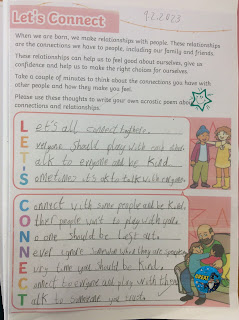 Let's Connect
9.2.2023
When we are born, we make relationships with people. These relationships
are the connections we have to people, including our family and friends.
These relationships can help us to feel good about ourselves, give us
confidence and help us to make the right choices for ourselves.
Take a couple of minutes to think about the connections you have with
other people and how they make you feel.
Please use these thoughts to write your own acrostic poem about
connections and relationships.
Let's all connect
Everyone should play with each other.
Talk to everyone and be kind.
Sometimes it's ok to talk with everyone.
Connect with some people and be kind.
Other people want to play with you.
No one should be left out.
Never ignore someone when they are
Every time you should be kind.
Connect to everyone and play with them
Talk to someone you trust.